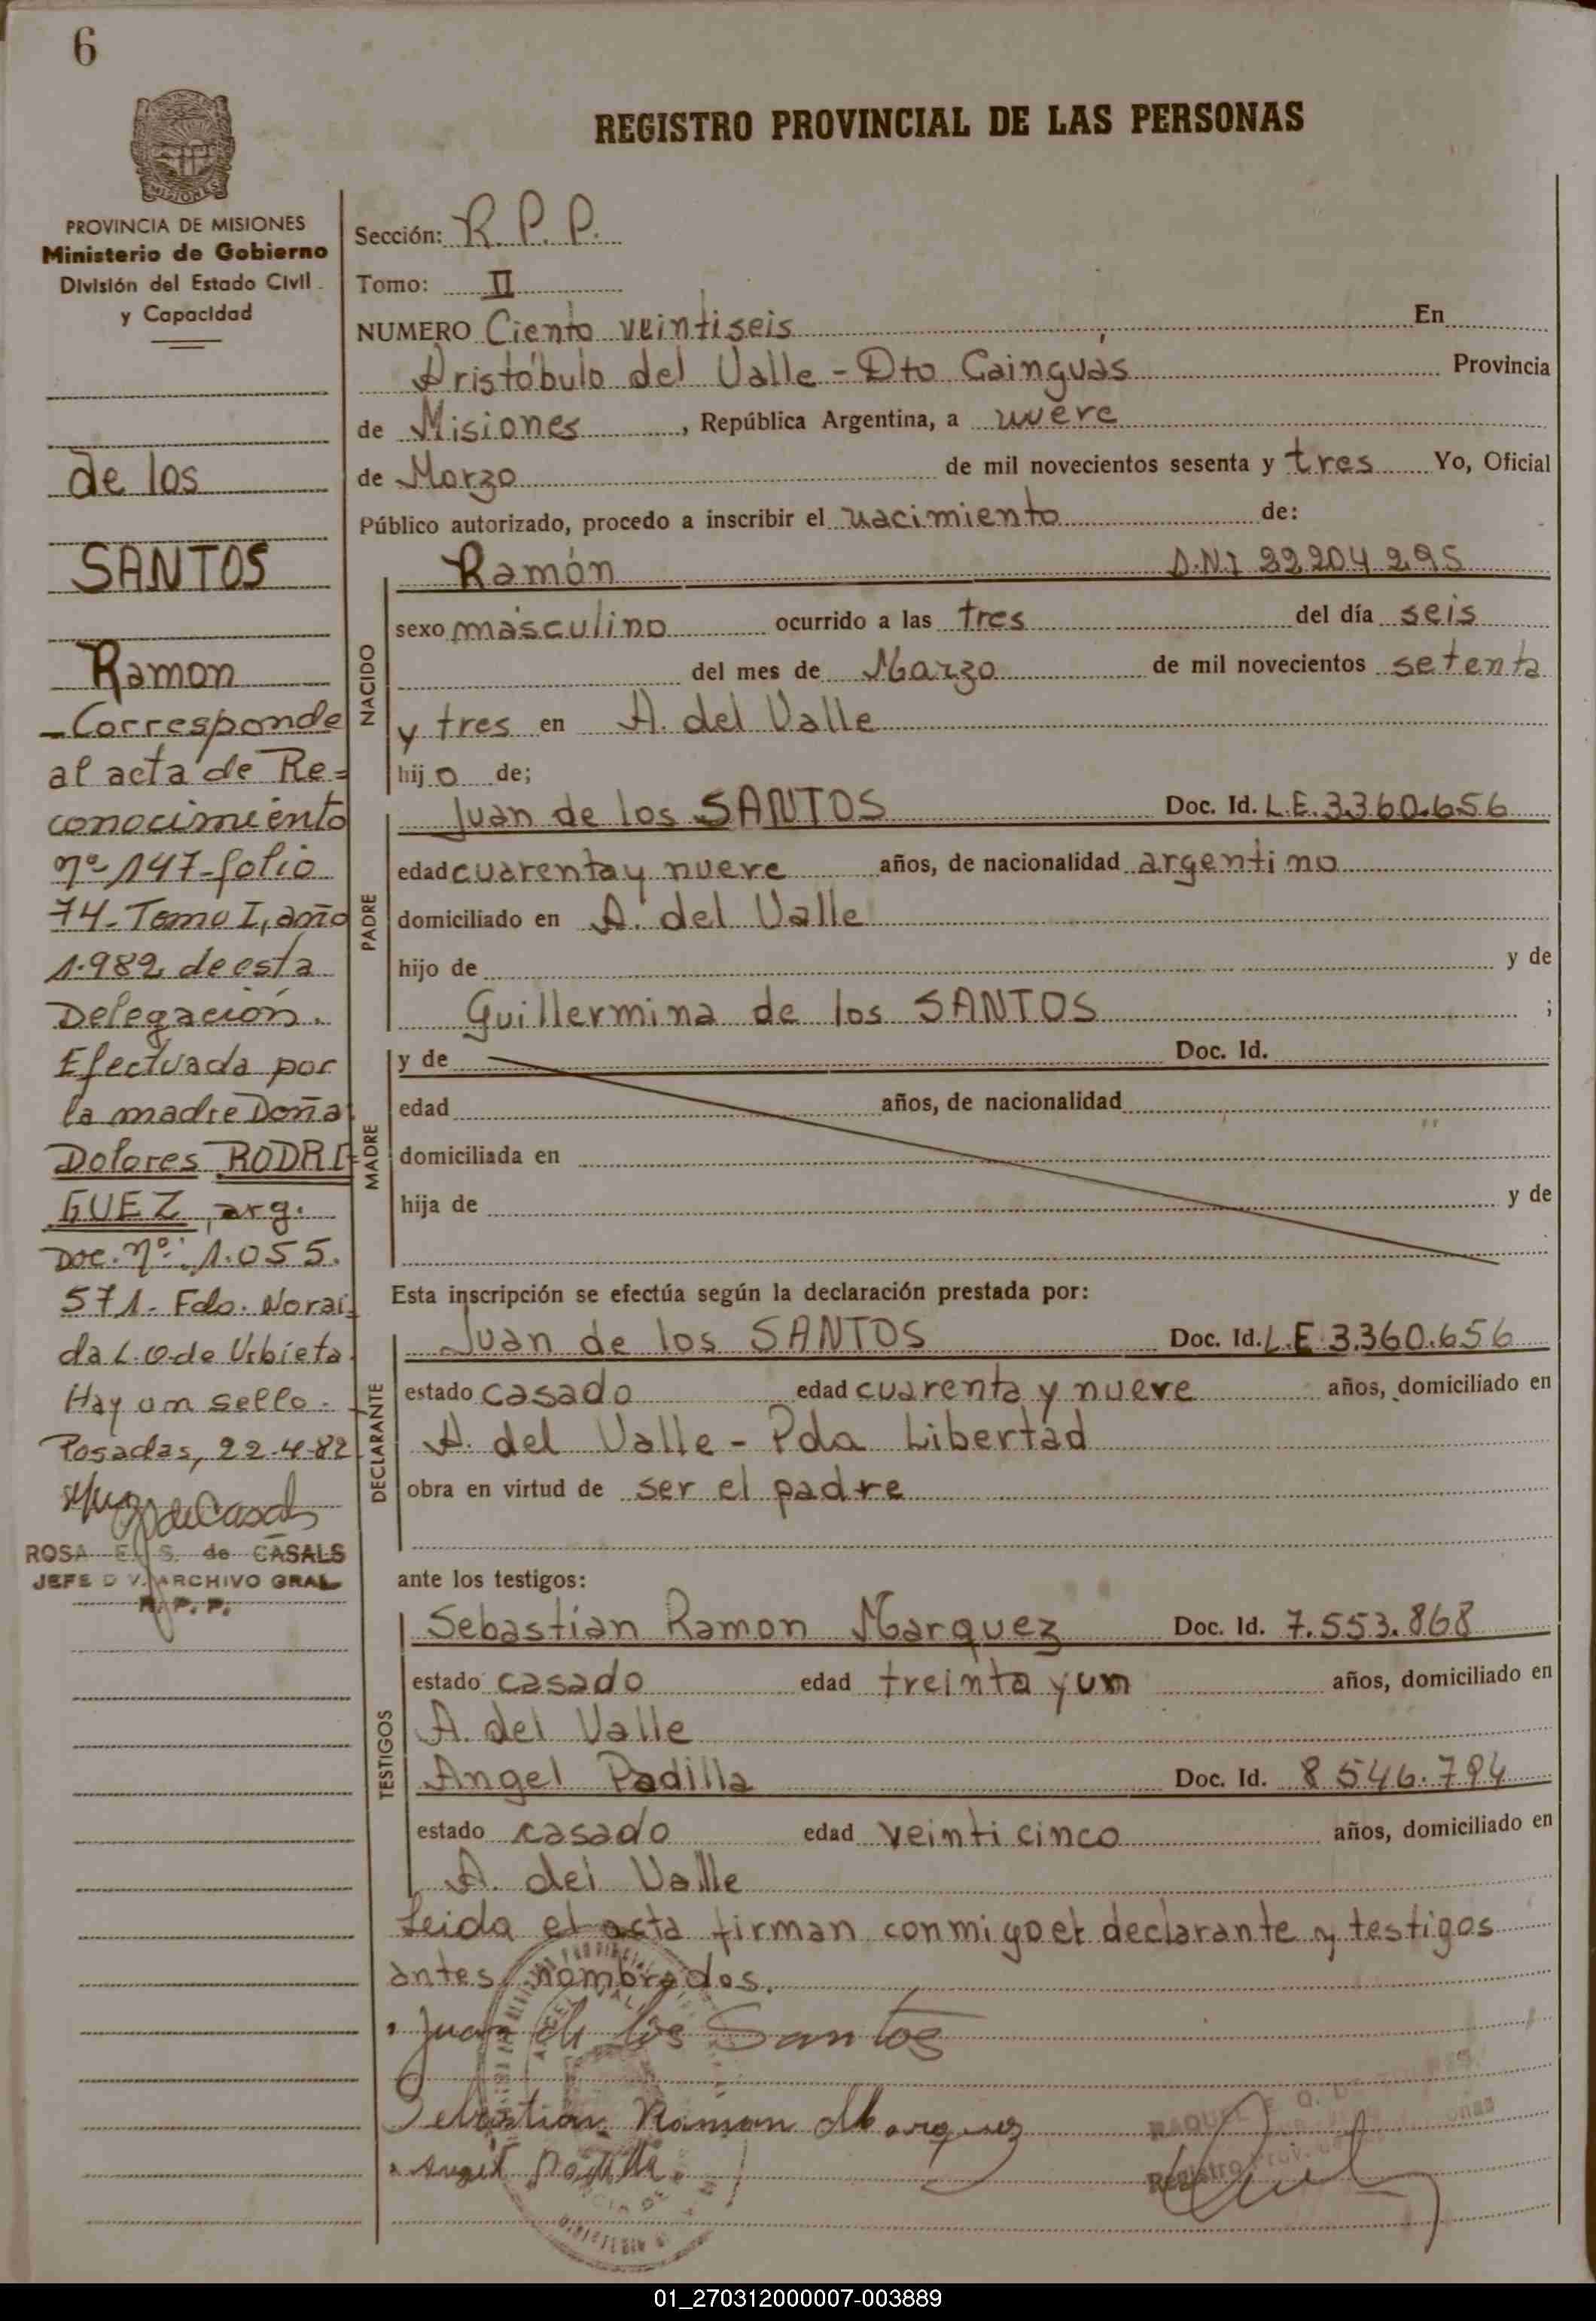 6
REGISTRO PROVINCIAL DE LAS PERSONAS
MISIONES
PROVINCIA DE MISIONES
Ministerio de Gobierno
División del Estado Civil
y Capacidad
de los
SANTOS
Ramon
- Corresponde
al acta de Re=
conocimiento
nº 147-folio
74-Tomo I, año
1.982 de esta
Delegación.
Efectuada por
la madre Doña
Dolores RODRI=
GUEZ, arg.
Doc. nº: 1.055.
571- Fdo. Norai=
da L.O. de Urbieta.
Hay um sello.-
Posadas, 22-4-82
de Casals
ROSA E. S. de CASALS
JEFE DIV. ARCHIVO GRAL
R. P. P.
Sección: R. P. P.
Tomo: II
NUMERO Ciento veintiseis En
Aristóbulo del Valle - Dto Cainguás Provincia
de Misiones, República Argentina, a nueve
de Marzo de mil novecientos sesenta y tres Yo, Oficial
Público autorizado, procedo a inscribir el nacimiento de:
NACIDO
Ramón D.N.I 22204295
sexo masculino ocurrido a las tres del día seis
del mes de Marzo de mil novecientos setenta
y tres en A. del Valle
hijo de;
PADRE
Juan de los SANTOS Doc. Id. L.E. 3.360.656
edad cuarenta y nueve años, de nacionalidad argentino
domiciliado en A. del Valle
hijo de y de
Guillermina de los SANTOS ;
MADRE
y de Doc. Id.
edad años, de nacionalidad
domiciliada en
hija de y de
Esta inscripción se efectúa según la declaración prestada por:
DECLARANTE
Juan de los SANTOS Doc. Id. L.E 3.360.656
estado casado edad cuarenta y nueve años, domiciliado en
A. del Valle - Pda Libertad
obra en virtud de ser el padre
ante los testigos:
TESTIGOS
Sebastian Ramon Marquez Doc. Id. 7.553.868
estado casado edad treinta y um años, domiciliado en
A. del Valle
Angel Padilla Doc. Id. 8546.794
estado casado edad veinticinco años, domiciliado en
A. del Valle
Leida el acta firman conmigo el declarante y testigos
antes nombrados.
Juan de los Santos
Sebastian Ramon Marquez
Angel Padilla
RAQUEL E. Q. DE
Registro Prov.
01_270312000007-003889